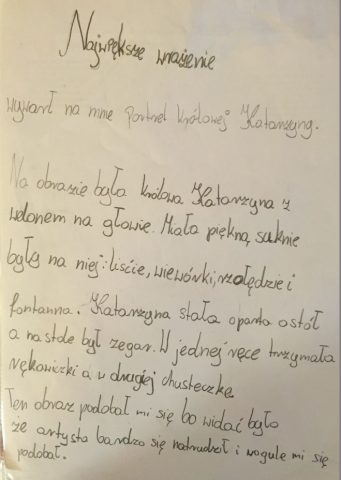 Największe wrażenie
wywarł na mnie portret królowej Katarzyny.
Na obrazie była królowa Katarzyna z
welonem na głowie. Miała piękną suknie
były na niej: liście, wiewórki, rzołędzie i
fontanna. Katarzyna stała oparta o stół
a na stole był zegar. W jednej ręce trzymała
rękawiczki a w drugiej chusteczkę.
Ten obraz podobał mi się bo widać było
że artysta bardzo się natrudził i wogule mi się
podobał.